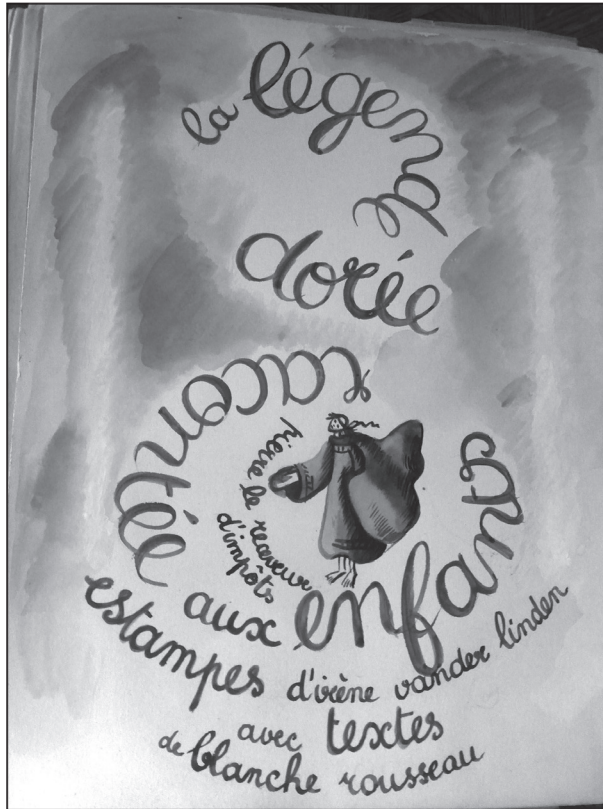 la légende
dorée
racontée aux enfants
pierre le receveur
d'impôts
estampes d'irène vander linden
avec textes
de blanche rousseau